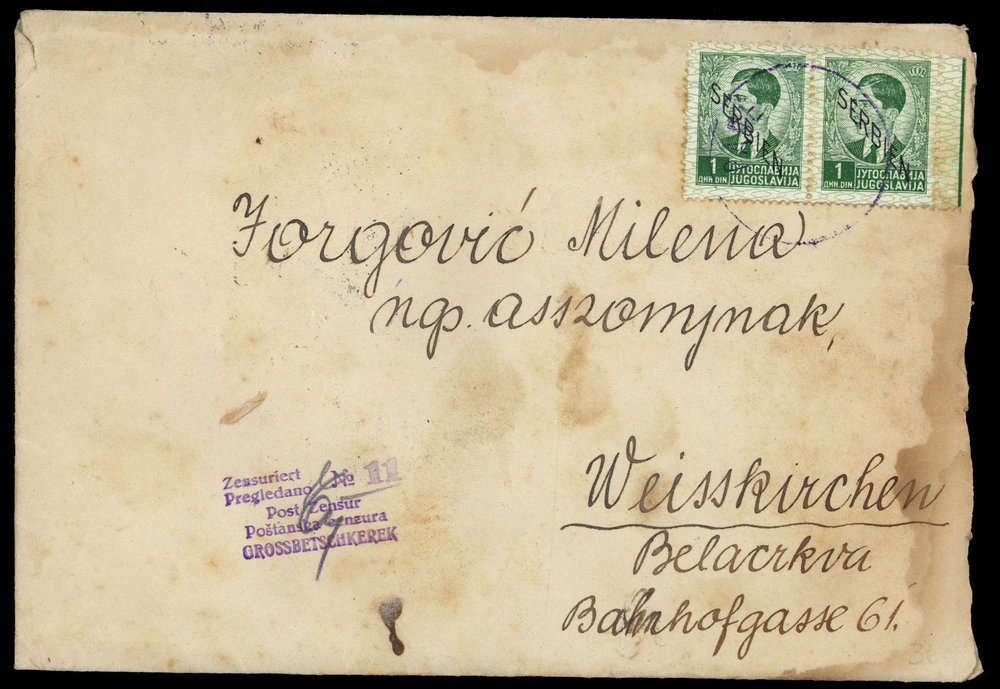 SERBIEN
1 ДИН. DIN ЈУГОСЛАВИЈА JUGOSLAVIJA
SERBIEN
1 ДИН. DIN ЈУГОСЛАВИЈА JUGOSLAVIJA
Forgović Milena
ngs. asszonynak,
Zensuriert No 11
Pregledano
Post Zensur
Poštanska cenzura
GROSSBETSCHKEREK
Weisskirchen
Belacrkva
Bahnhofgasse 61.